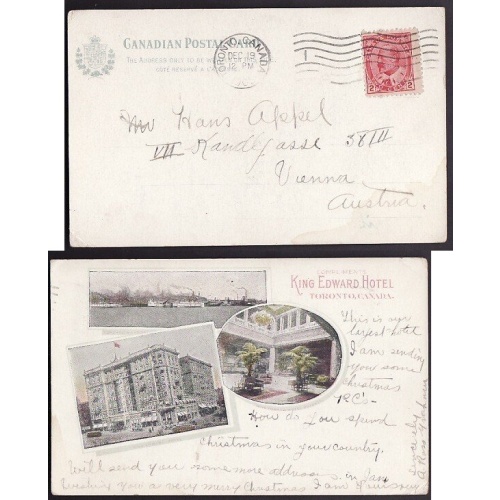 CANADIAN POSTAL CARD
THE ADDRESS ONLY TO BE
TORONTO, CANADA
DEC 19
12 PM
1
2 2
Mr Hans Appel
VII Kandlgasse 38/II
Vienna
Austria.
COMPLIMENTS
KING EDWARD HOTEL
TORONTO, CANADA.
This is our
largest hotel
I am sending
you some
Christmas
P.C's -
How do you spend
Christmas in your country.
Will send you some more address in Jan
Wishing you a very merry Christmas I am
sincerely